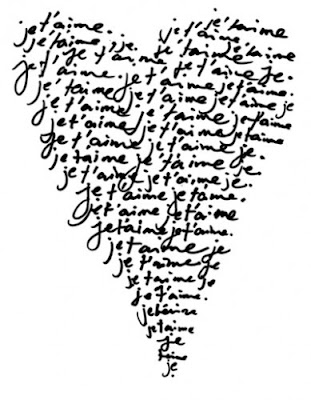 je t'aime. je t'aime
je t'aime. je t'aime.
je t'aime. je. je t'aime je t'aime
je t'aime. je t'aime je.
je t'aime. je t'aime je t'aime.
je t'aime je t'aime je t'aime je
je t'aime. je t'aime je t'aime
je t'aime. je t'aime je t'aime
je t'aime. je t'aime je.
je t'aime je t'aime je
je t'aime. je t'aime je.
je t'aime je t'aime.
je t'aime je t'aime
je t'aime je t'aime.
je t'aime je
je t'aime je
je t'aime je
je t'aime.
je t'aime
je
t'aime
je